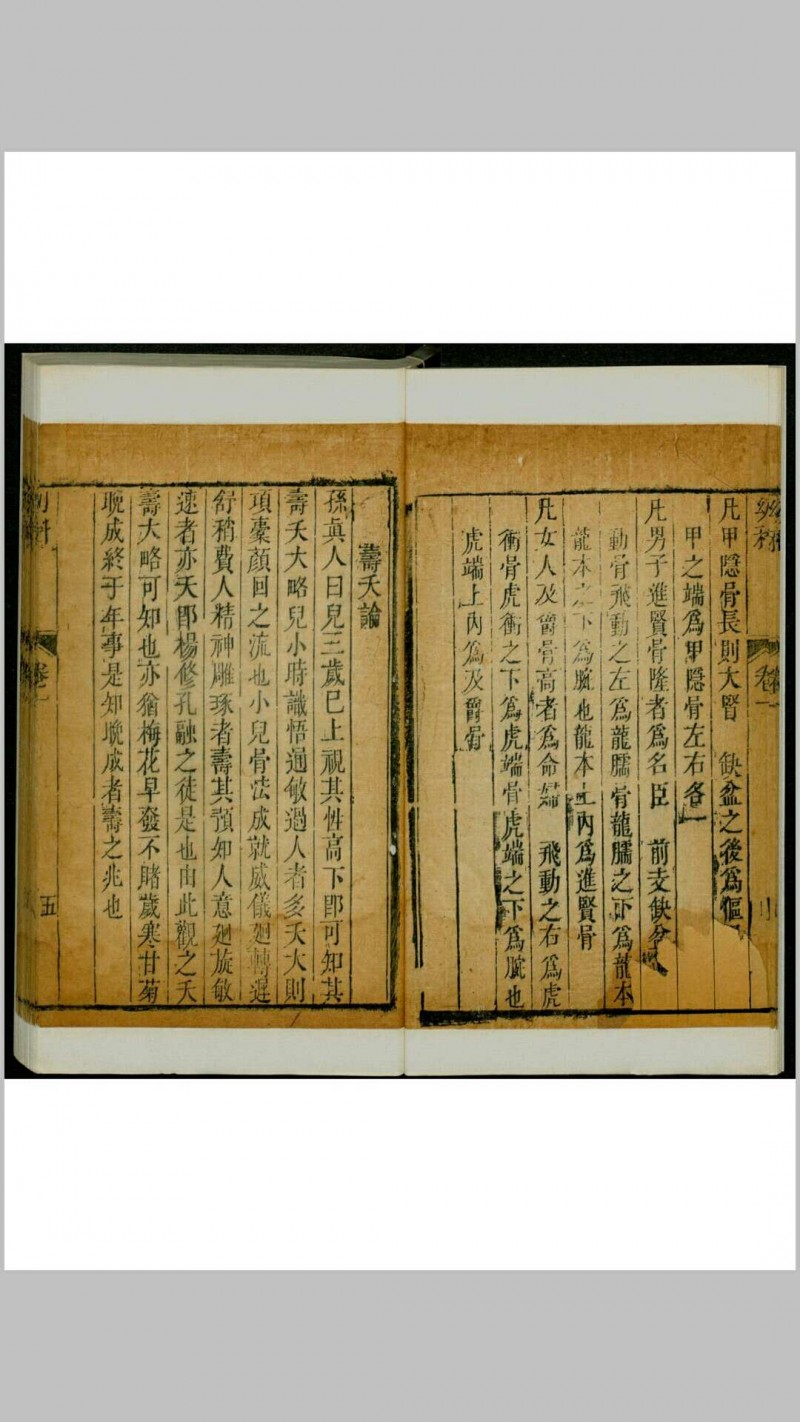 卷一
凡甲隱骨長則大賢　缺盆之後爲傴
甲之端爲甲隱骨左右各一
凡男子進賢骨隆者爲名臣　前支缺盆
動骨飛動之左爲龍臑骨龍臑之下爲龍本
龍本之下爲腕也龍本上內爲進賢骨
凡女人及爵骨高者爲命婦　飛動之右爲虎
衝骨虎衝之下爲虎端骨虎端之下爲腕也
虎端上內爲及爵骨
壽夭論
孫真人曰兒三歲已上視其性高下卽可知其
壽夭大略兒小時識悟通敏過人者多夭大則
項橐顏回之流也小兒骨法成就威儀廻轉遲
舒稍費人精神雕琢者壽其預知人意廻旋敏
速者亦夭卽楊修孔融之徒是也由此觀之夭
壽大略可知也亦猶梅花早發不睹歲寒甘菊
晚成終于年事是知晚成者壽之兆也
卷一
五